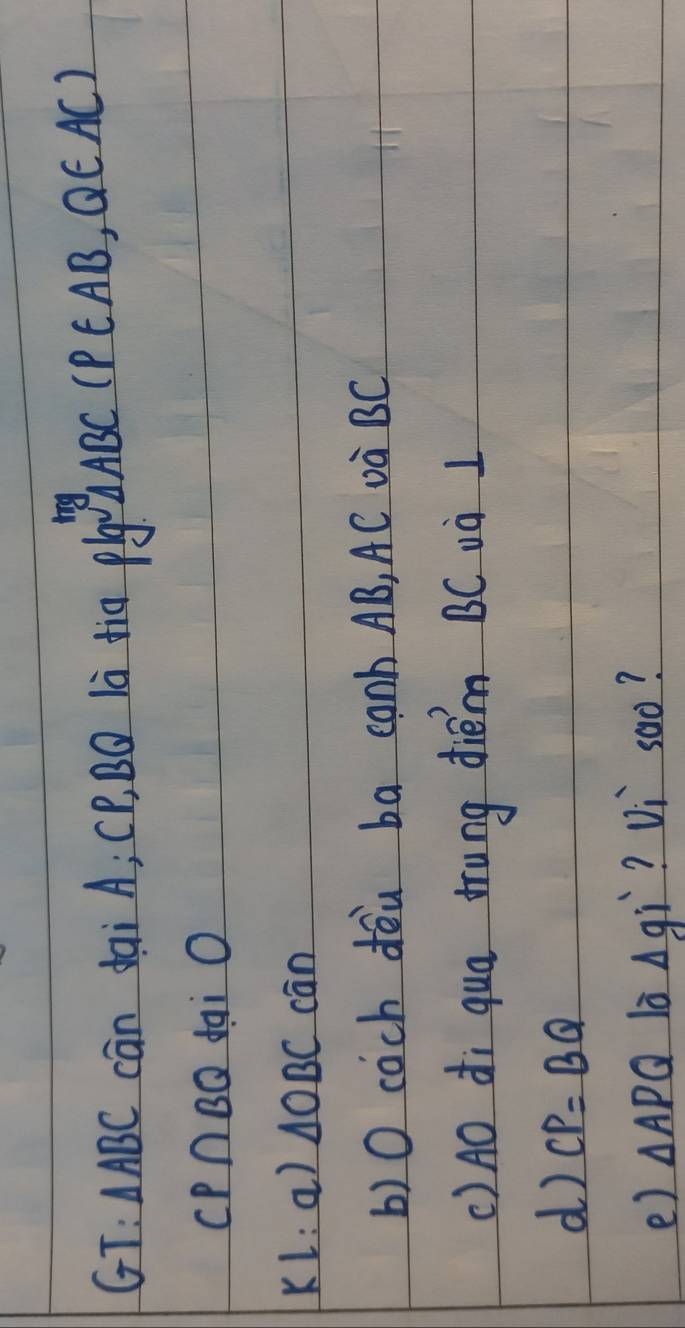 GT: ΔABC cân tại A; CP, BQ là tia pgv trg ΔABC (P ∈ AB, Q ∈ AC)
CP ∩ BQ tại O
KL: a) ΔOBC cân
b) O cách đều ba cạnh AB, AC và BC
c) AO đi qua trung điểm BC và ⊥
d) CP = BQ
e) ΔAPQ là Δ gì? Vì sao?